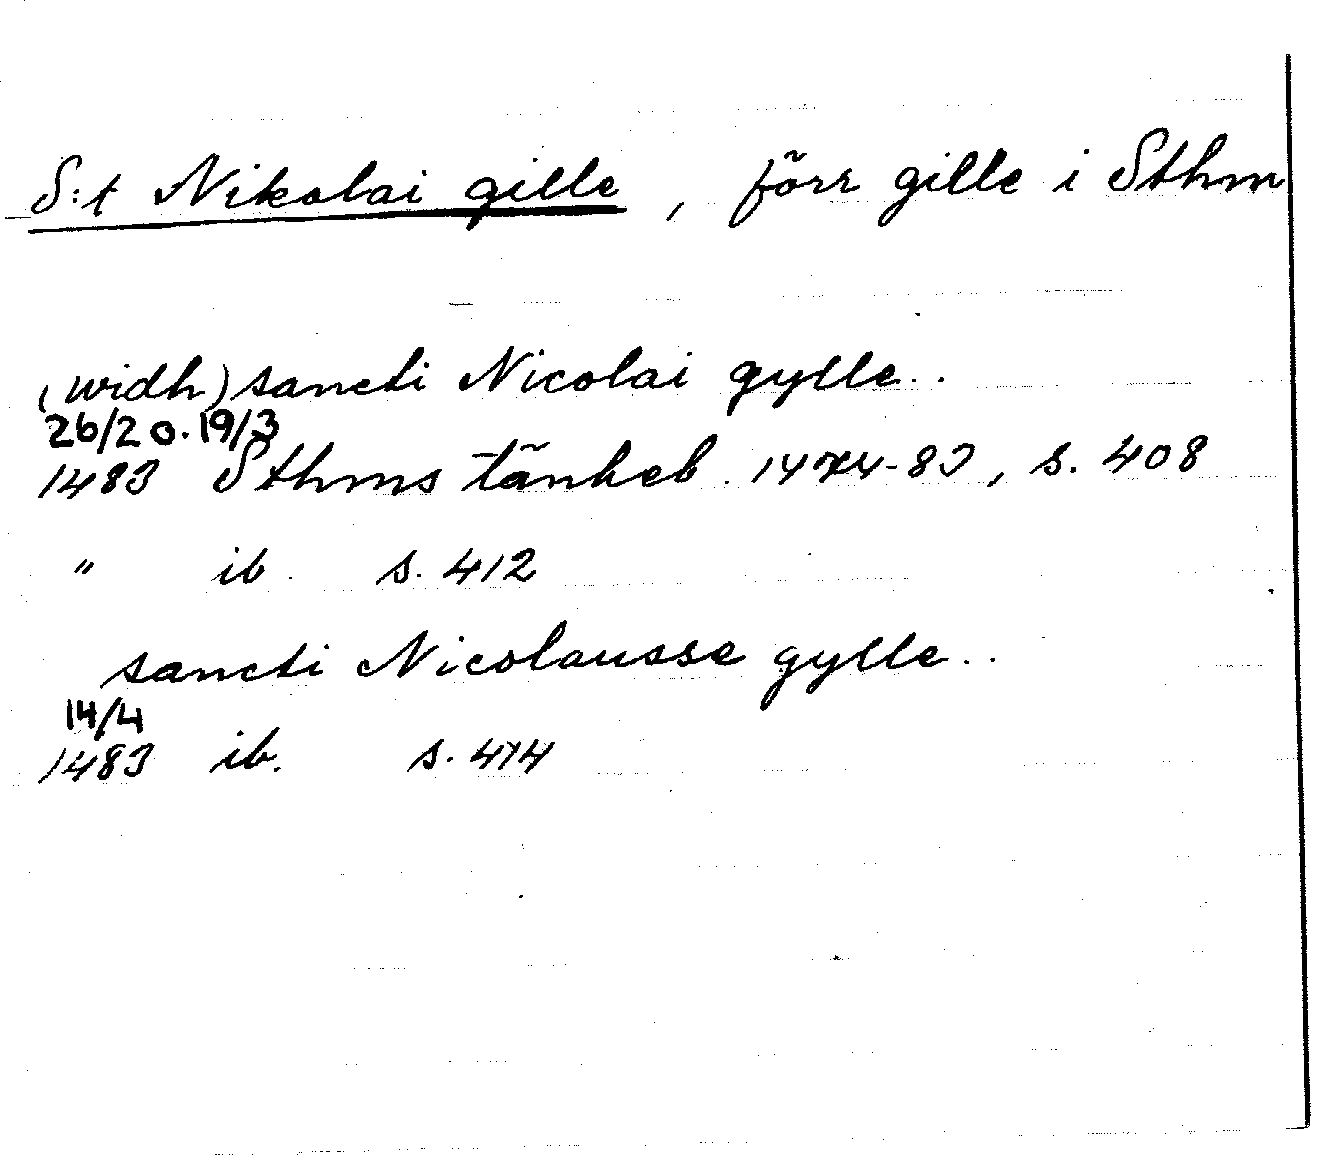 S:t Nikolai gille, förr gille i Sthm
(widh) sancti Nicolai gylle..
26/2 o. 19/3
1483 Sthms tänkeb. 1474-83, s. 408
" ib. s. 412
sancti Nicolausse gylle..
14/4
1483 ib. s. 414